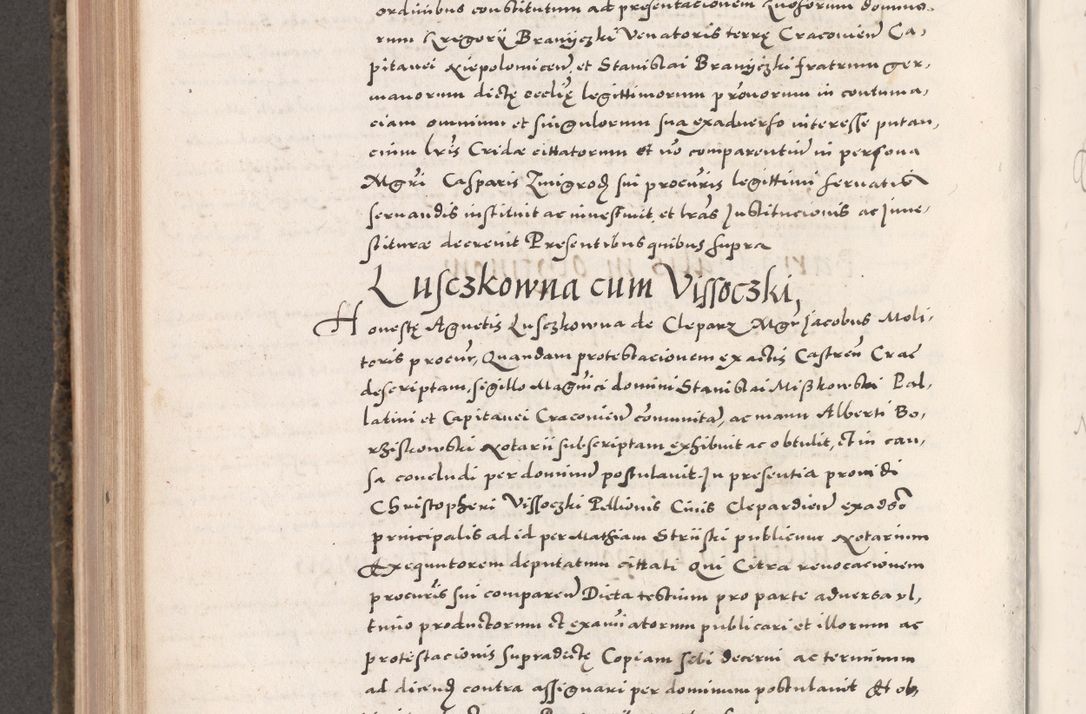 ordinibus constitutum ad presentacionem Gnosorum domino-
rum Gregorÿ Branÿczki Venatoris terrę Cracovien Ca-
pitanei Niepolomicen et Stanislai Branÿczki fratrum ger-
manorum dictę ecclię legittimorum pronorum in contuma-
ciam omnium et singulorum sua ex adverso interesse putan-
cium lrīs Cridae cittatorum et nō comparentiū in persona
Mgri Casparis Zmigrod sui procuris legittimi servatis
servandis instituit ac investivit, et lrās Institucionis ac Inve-
stiturae decrevit Presentibus quibus supra
Lusczkowna cum Vissoczki,
Honestę Agnetis Lusczkowna de Cleparz Mgr Jacobus Moli-
toris procur, Quandam protestacionem ex actis Castren Crac
descriptam, sigillo Magnici domini Stanislai Mißkowski Pal-
latini et Capitanei Cracovien comunita, ac manu Alberti Bo-
rziskowski Notarii subscriptam exhibuit ac obtulit, et in cau-
sa concludi per dominū postulavit. In presentia providi
Christopheri Vissoczki Pellionis Civis Clepardien ex adso
principalis ad id per Mathiam Strÿski publicum Notarium
Exequutorem deputatum cittati Qui Citra revocacionem
procuris sui comparen Dicta testium pro parte adversa ul-
timo productorum et examinatorum publicari et illorum ac
protestacionis supradictę Copiam sibi decerni ac terminum
ad dicend contra assignari per dominum postulavit Et ob,